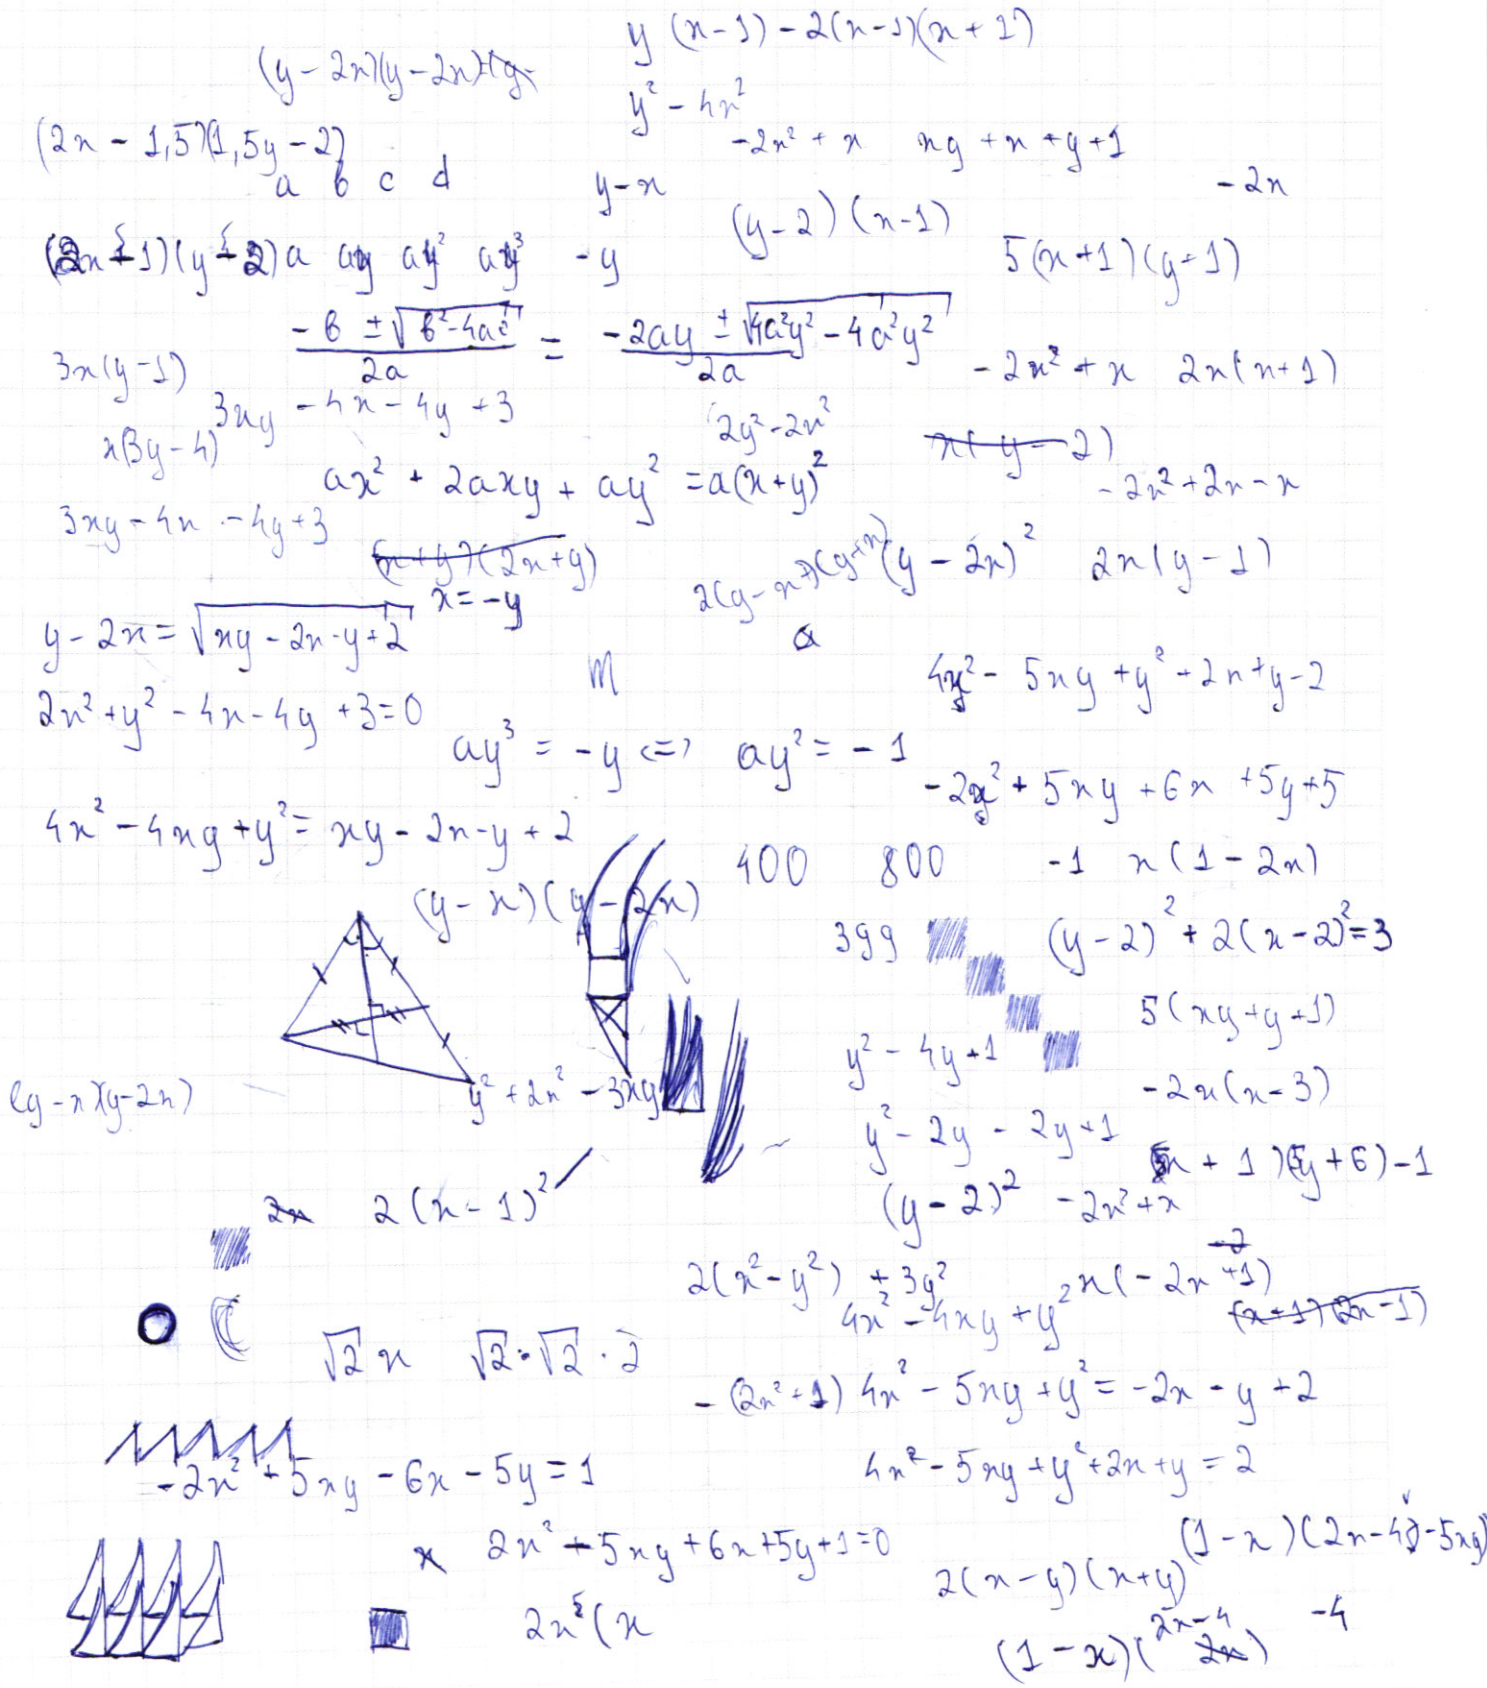 y (x-1) - 2(x-1)(x+1)
(y-2x)(y-2x)+y
y² - 4x²
(2x - 1,5)(1,5y - 2)
-2x² + x xy + x + y + 1
a b c d
y-x
-2x
(y-2)(x-1)
a ay ay² ay³ -y
5(x+1)(y+1)
-b ±√b²-4ac / 2a = -2ay ±√4a²y² - 4a²y² / 2a
3x(y-1)
-2x² + x 2x(x+1)
3xy - 4x - 4y + 3
2y²-2x²
x(3y-4)
x(y-2)
ax² + 2axy + ay² = a(x+y)²
-2x²+2x-x
3xy - 4x - 4y + 3
(x+y)(2x+y)
(y-2x)² 2x(y-1)
x = -y
y - 2x = √xy - 2x - y + 2
a
m
4x² - 5xy + y² + 2x + y - 2
2x² + y² - 4x - 4y + 3 = 0
ay³ = -y <=> ay² = -1
-2x² + 5xy + 6x + 5y + 5
4x² - 4xy + y² = xy - 2x - y + 2
400 800 -1 x(1-2x)
(y-x)(y-2x)
399 (y-2)² + 2(x-2)² = 3
5(xy+y+1)
y² - 4y + 1
(y-x)(y-2x) y² + 2x² - 3xy
-2x(x-3)
y² - 2y - 2y + 1
(5x + 1)(5y + 6) - 1
2x 2(x-1)²
(y-2)² -2x²+x
-2
2(x²-y²) + 3y² x(-2x+1)
4x² - 4xy + y²
(x+1)(2x-1)
√2 x √2·√2·2
-(2x²+1) 4x² - 5xy + y² = -2x - y + 2
-2x² + 5xy - 6x - 5y = 1
4x² - 5xy + y² + 2x + y = 2
x 2x² - 5xy + 6x + 5y + 1 = 0
(1-x)(2x-4y-5xy)
2(x-y)(x+y)
2x⁵(x
2x-4 -4
(1-x)( 2x)